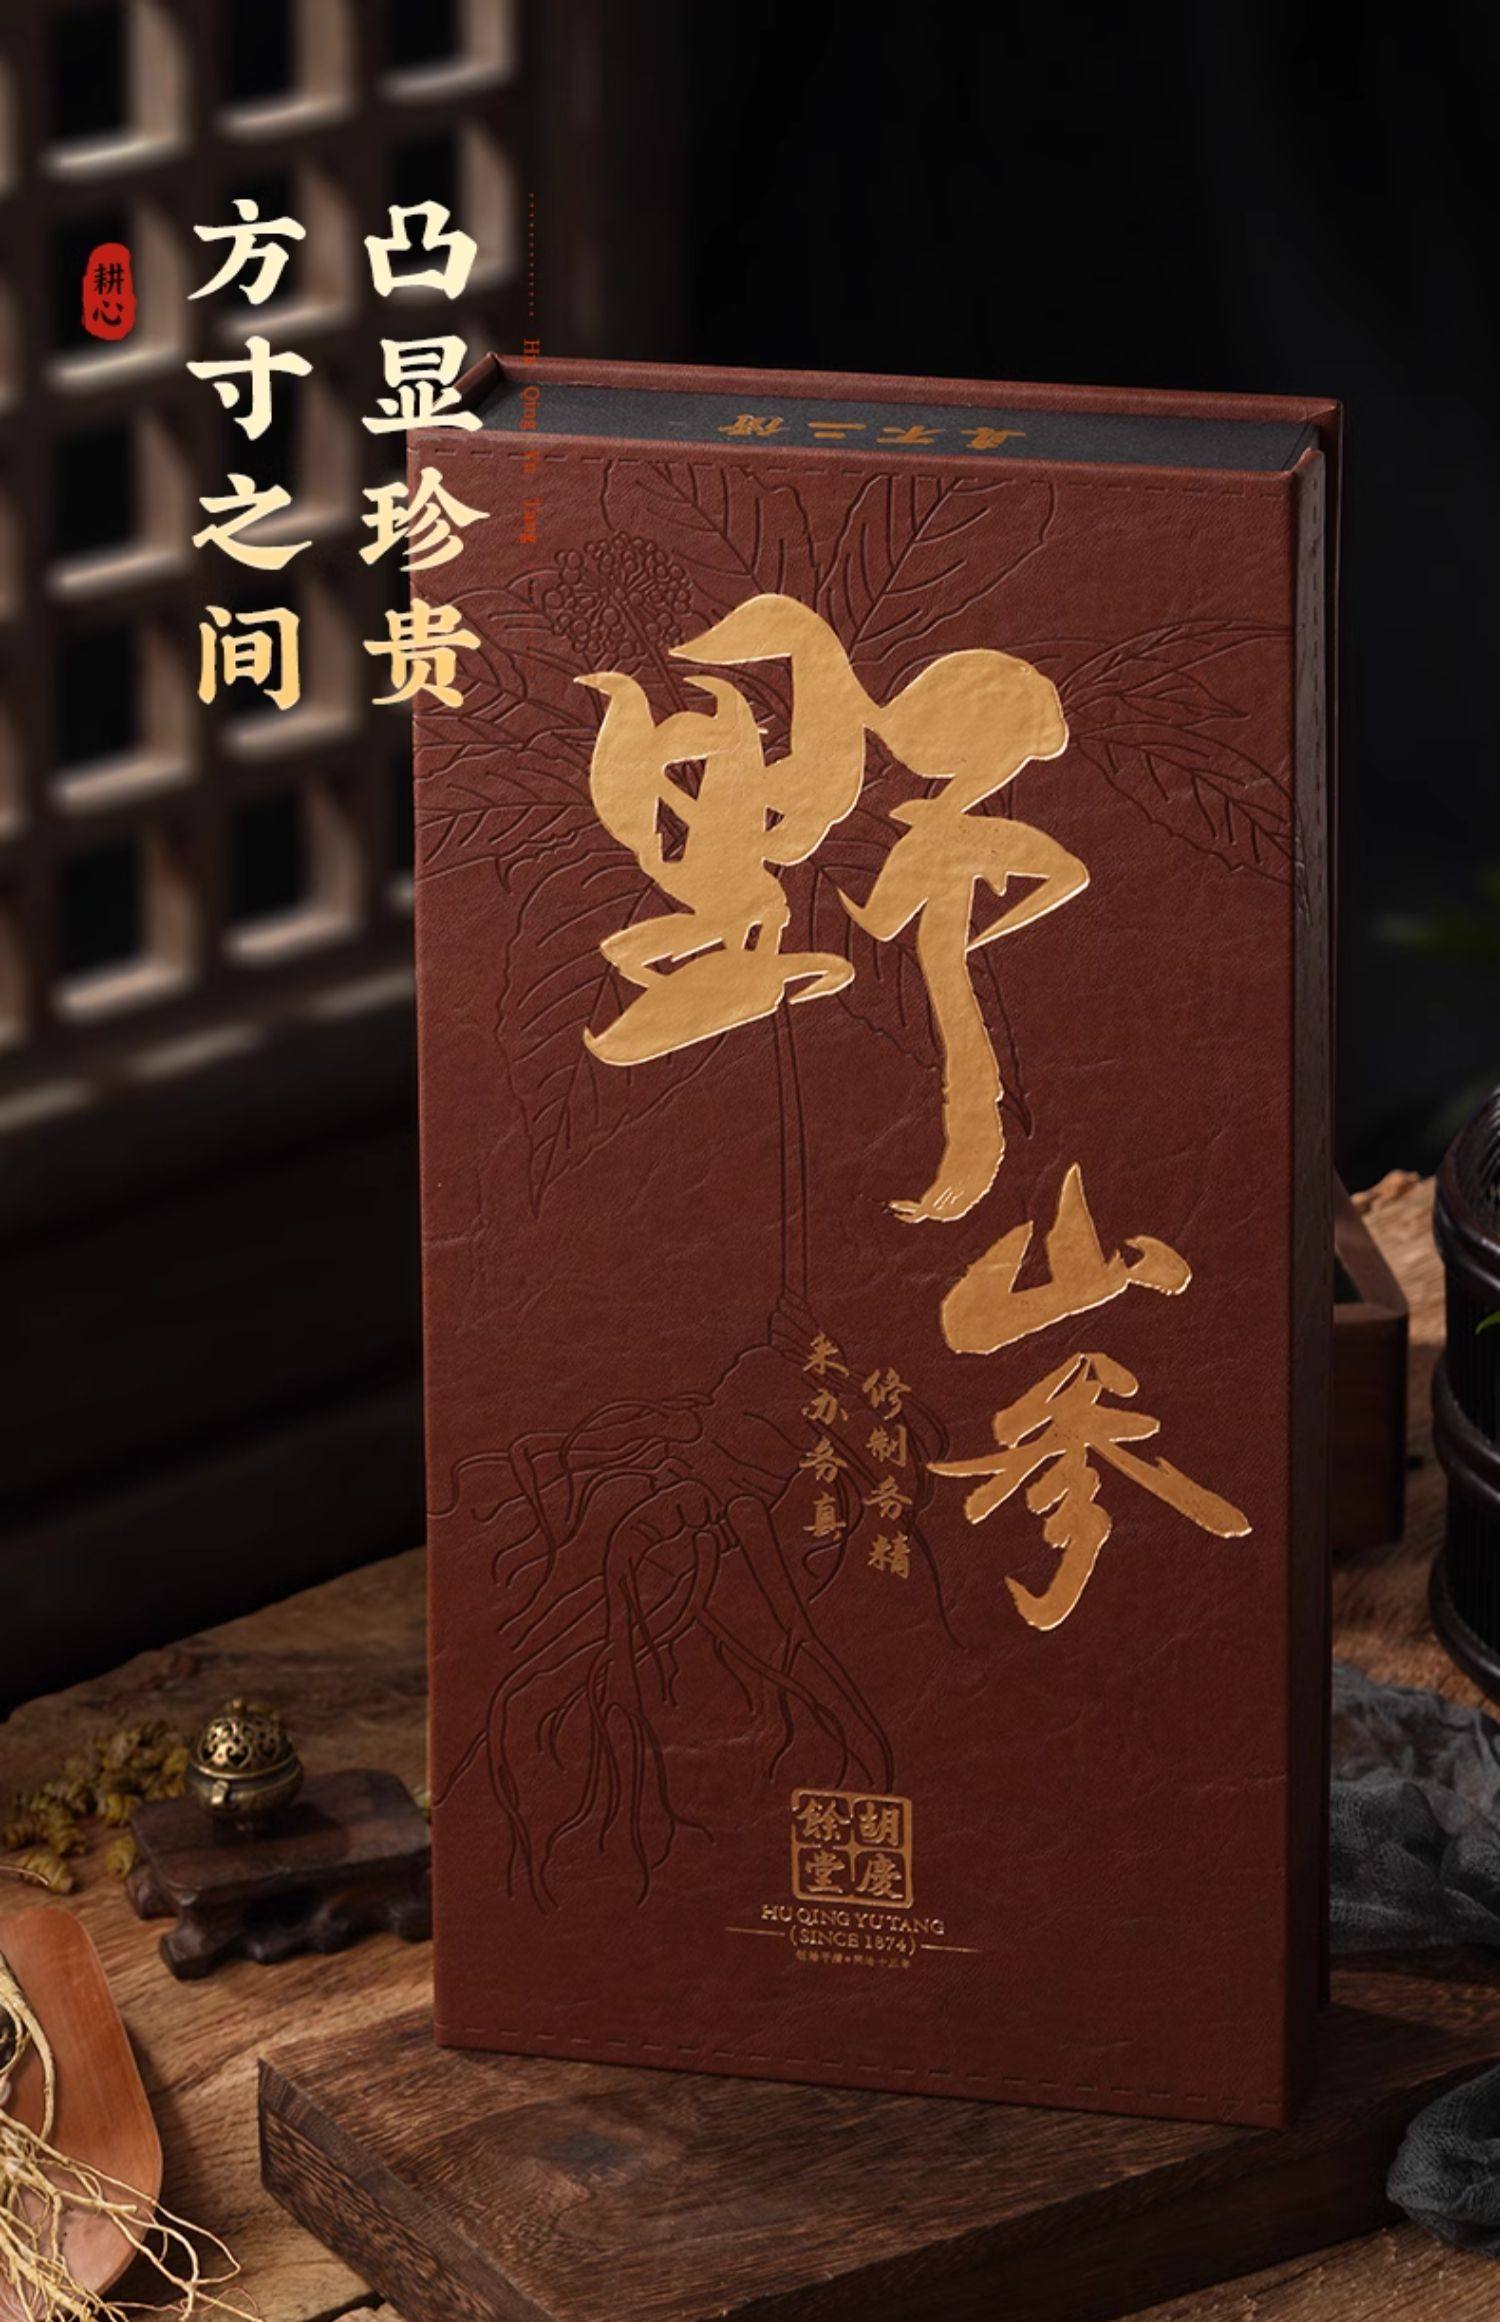 凸显珍贵
方寸之间
耕心
Hu Qing Yu Tang
真不二价
野山参
修制务精
采办务真
胡慶餘堂
HU QING YU TANG
(SINCE 1874)